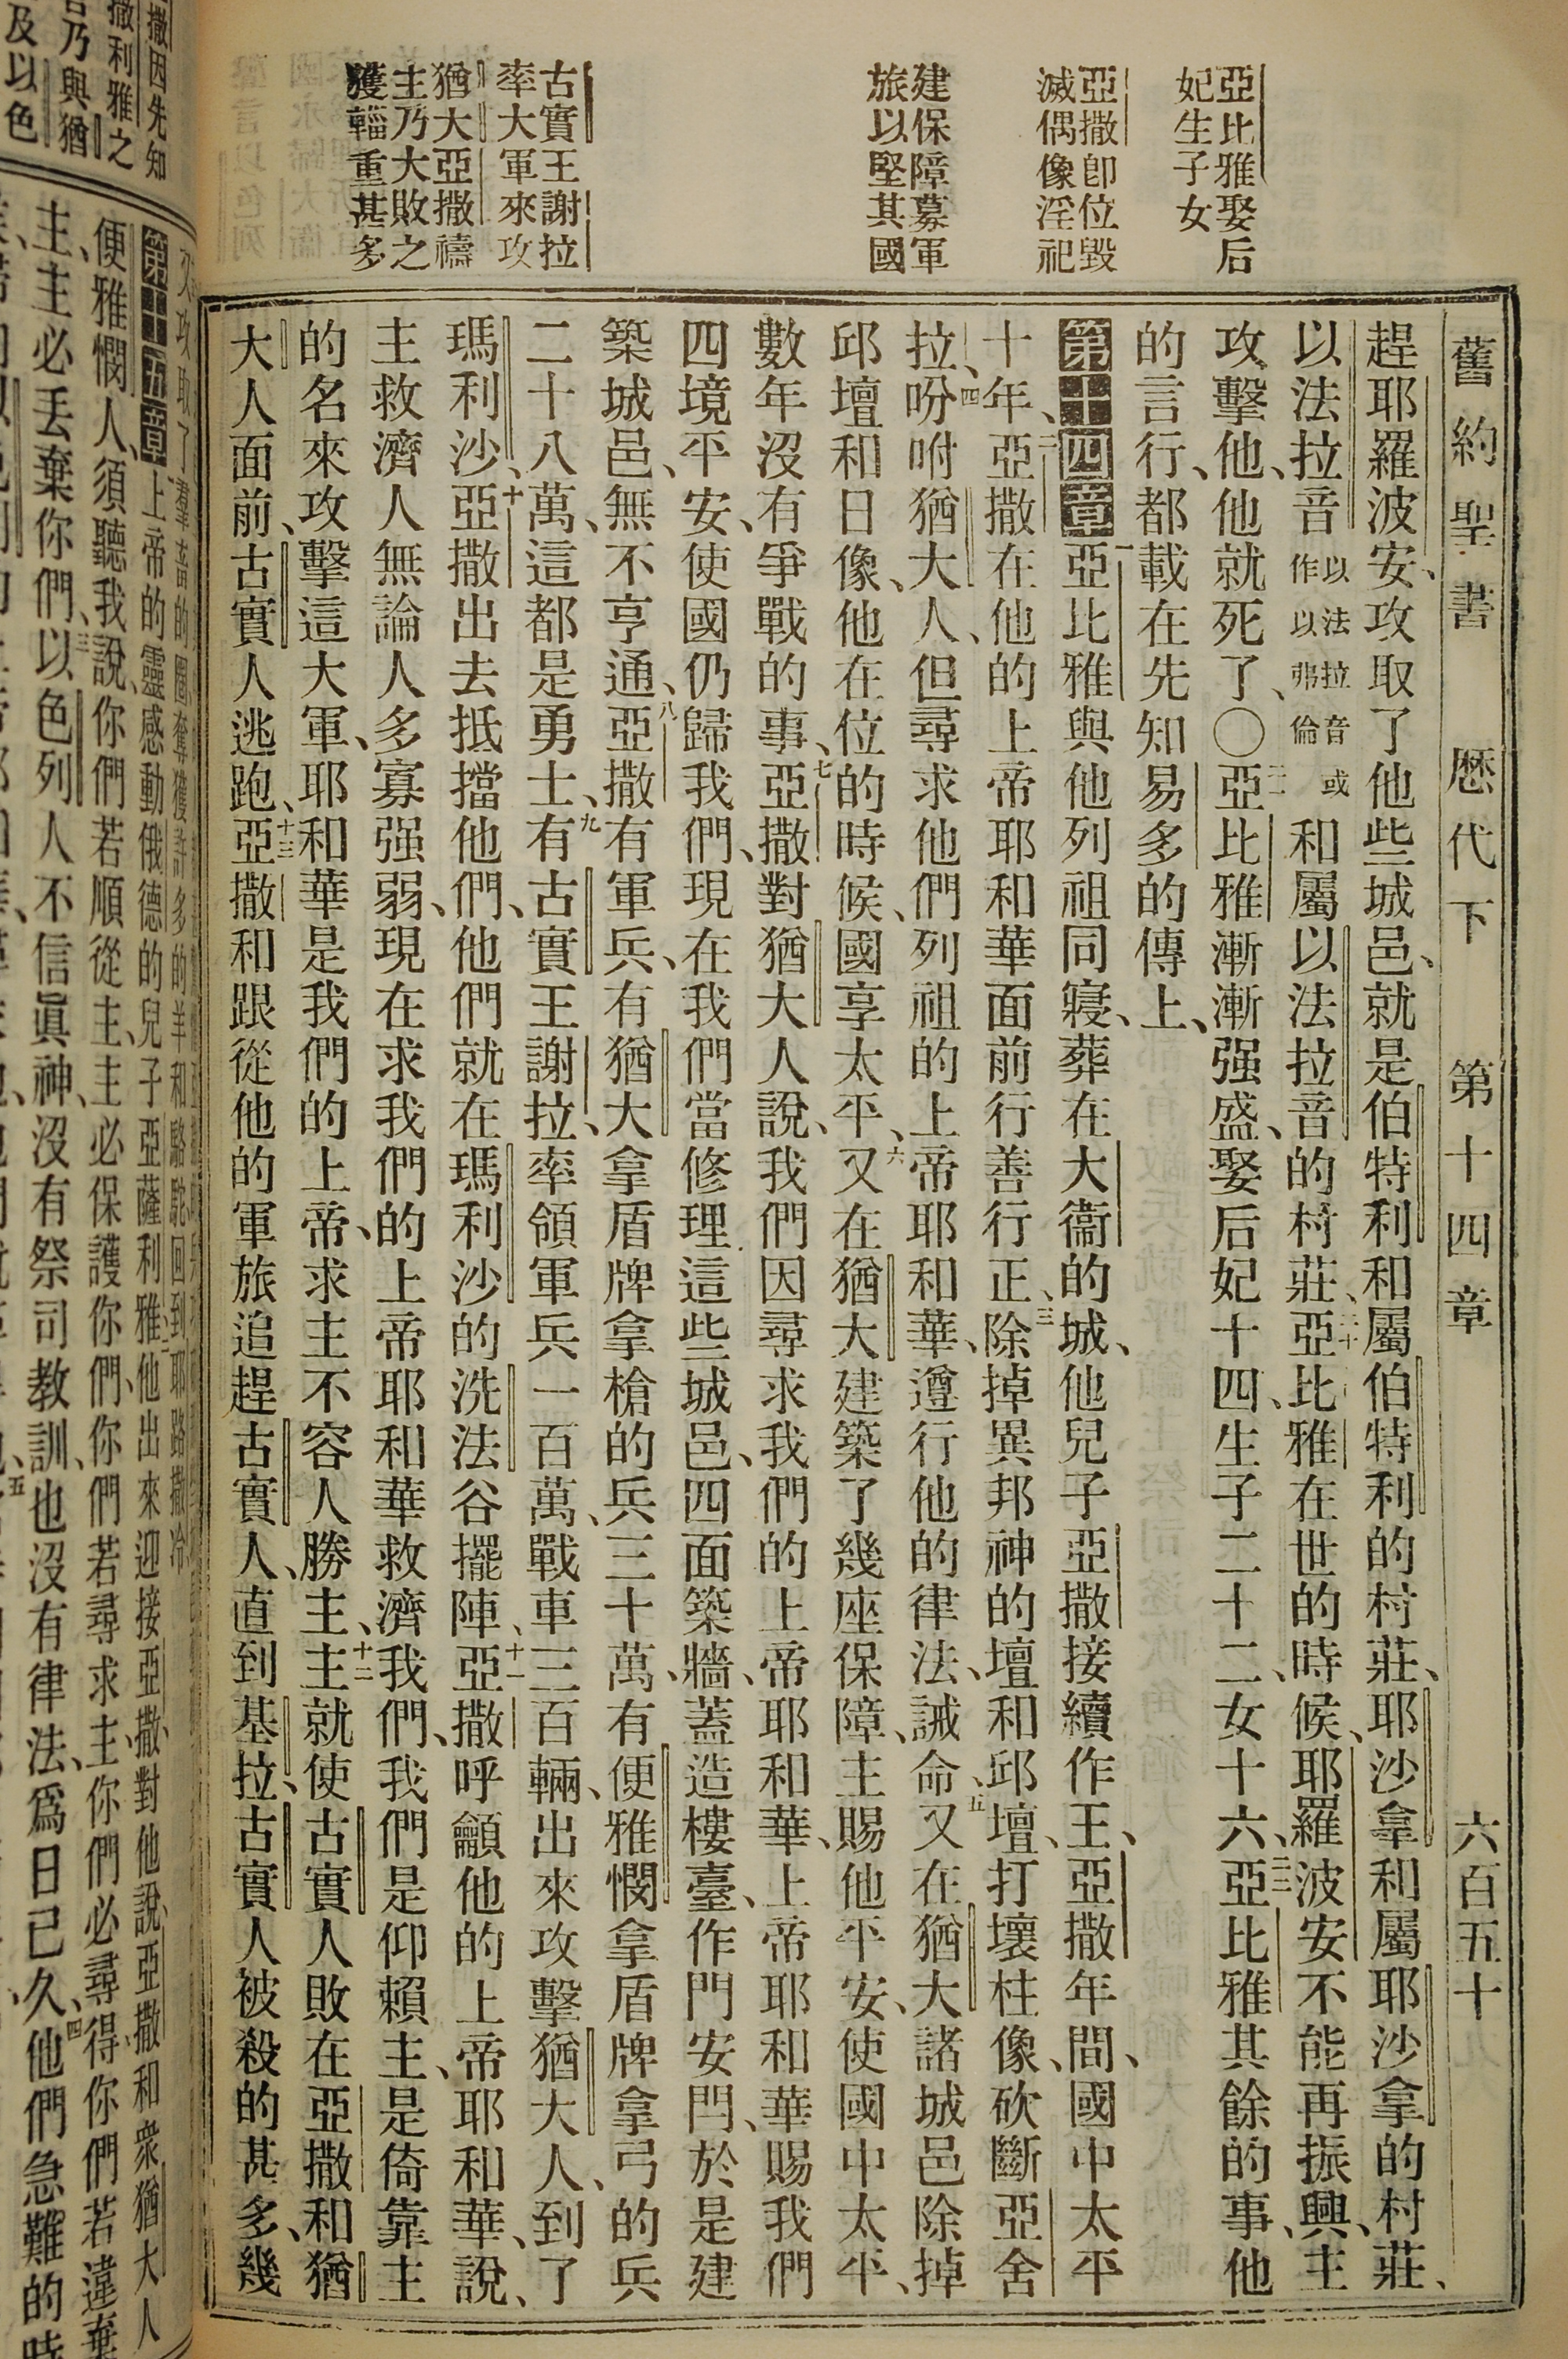 舊約聖書 歷代下 第十四章 六百五十
亞比雅娶后
妃生子女
亞撒卽位毀
滅偶像淫祀
建保障募軍
旅以堅其國
古實王謝拉
率大軍來攻
猶大亞撒禱
主乃大敗之
獲輜重甚多
趕耶羅波安、攻取了他些城邑、就是伯特利和屬伯特利的村莊、耶沙拿和屬耶沙拿的村莊、
以法拉音以法拉音或作以弗倫和屬以法拉音的村莊、二十亞比雅在世的時候、耶羅波安不能再振興、主
攻擊他、他就死了、〇二一亞比雅漸漸强盛、娶后妃十四、生子二十二、女十六、二二亞比雅其餘的事、他
的言行、都載在先知易多的傳上、
第十四章一亞比雅與他列祖同寢、葬在大衞的城、他兒子亞撒接續作王、亞撒年間、國中太平
十年、二亞撒在他的上帝耶和華面前行善行正、三除掉異邦神的壇和邱壇、打壞柱像、砍斷亞舍
拉、四吩咐猶大人、但尋求他們列祖的上帝耶和華、遵行他的律法、誡命、五又在猶大諸城邑除掉
邱壇和日像、他在位的時候、國享太平、六又在猶大建築了幾座保障、主賜他平安、使國中太平、
數年沒有爭戰的事、七亞撒對猶大人說、我們因尋求我們的上帝耶和華、上帝耶和華賜我們
四境平安、使國仍歸我們、現在我們當修理這些城邑、四面築牆、蓋造樓臺、作門安閂、於是建
築城邑、無不亨通、八亞撒有軍兵、有猶大拿盾牌拿槍的兵三十萬、有便雅憫拿盾牌拿弓的兵
二十八萬、這都是勇士、九有古實王謝拉、率領軍兵一百萬、戰車三百輛、出來攻擊猶大人、到了
瑪利沙、十亞撒出去抵擋他們、他們就在瑪利沙的洗法谷擺陣、十一亞撒呼籲他的上帝耶和華說、
主救濟人、無論人多寡强弱、現在求我們的上帝耶和華救濟我們、我們是仰賴主、是倚靠主
的名來攻擊這大軍、耶和華是我們的上帝、求主不容人勝主、十二主就使古實人敗在亞撒和猶
大人面前、古實人逃跑、十三亞撒和跟從他的軍旅追趕古實人、直到基拉、古實人被殺的甚多、幾
撒因先知
撒利雅之
乃與猶
及以色
第十五章上帝的靈感動俄德的兒子亞薩利雅、二他出來迎接亞撒、對他說、亞撒和衆猶大人
便雅憫人、須聽我說、你們若順從主、主必保護你們、你們若尋求主、你們必尋得、你們若違棄
主、主必丟棄你們、三以色列人不信眞神、沒有祭司教訓、也沒有律法、爲日已久、四他們急難的時